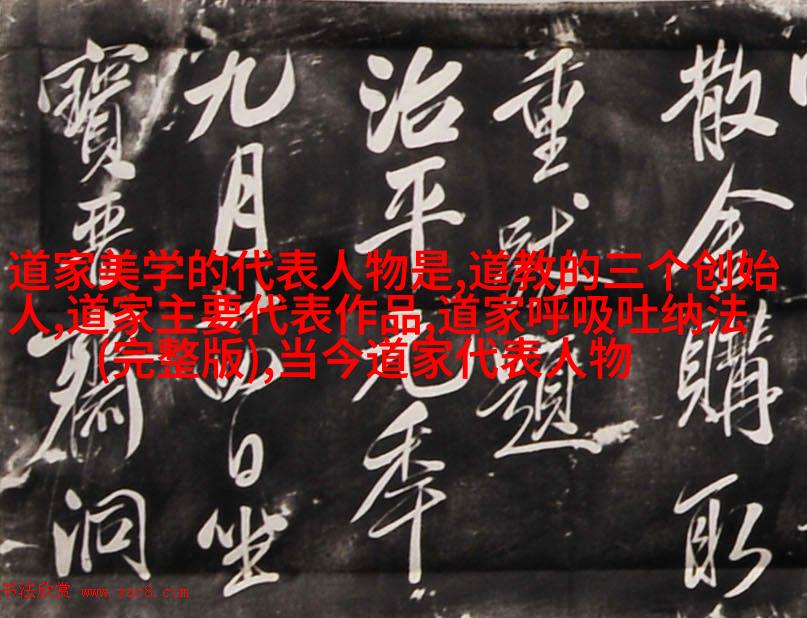 散金購取
重跋題
治平元秊
九月日坐
寶晋齋洞
道家美学的代表人物是,道教的三个创始
人,道家主要代表作品,道家呼吸吐纳法
(完整版),当今道家代表人物
书法欣赏 www.yac8.com